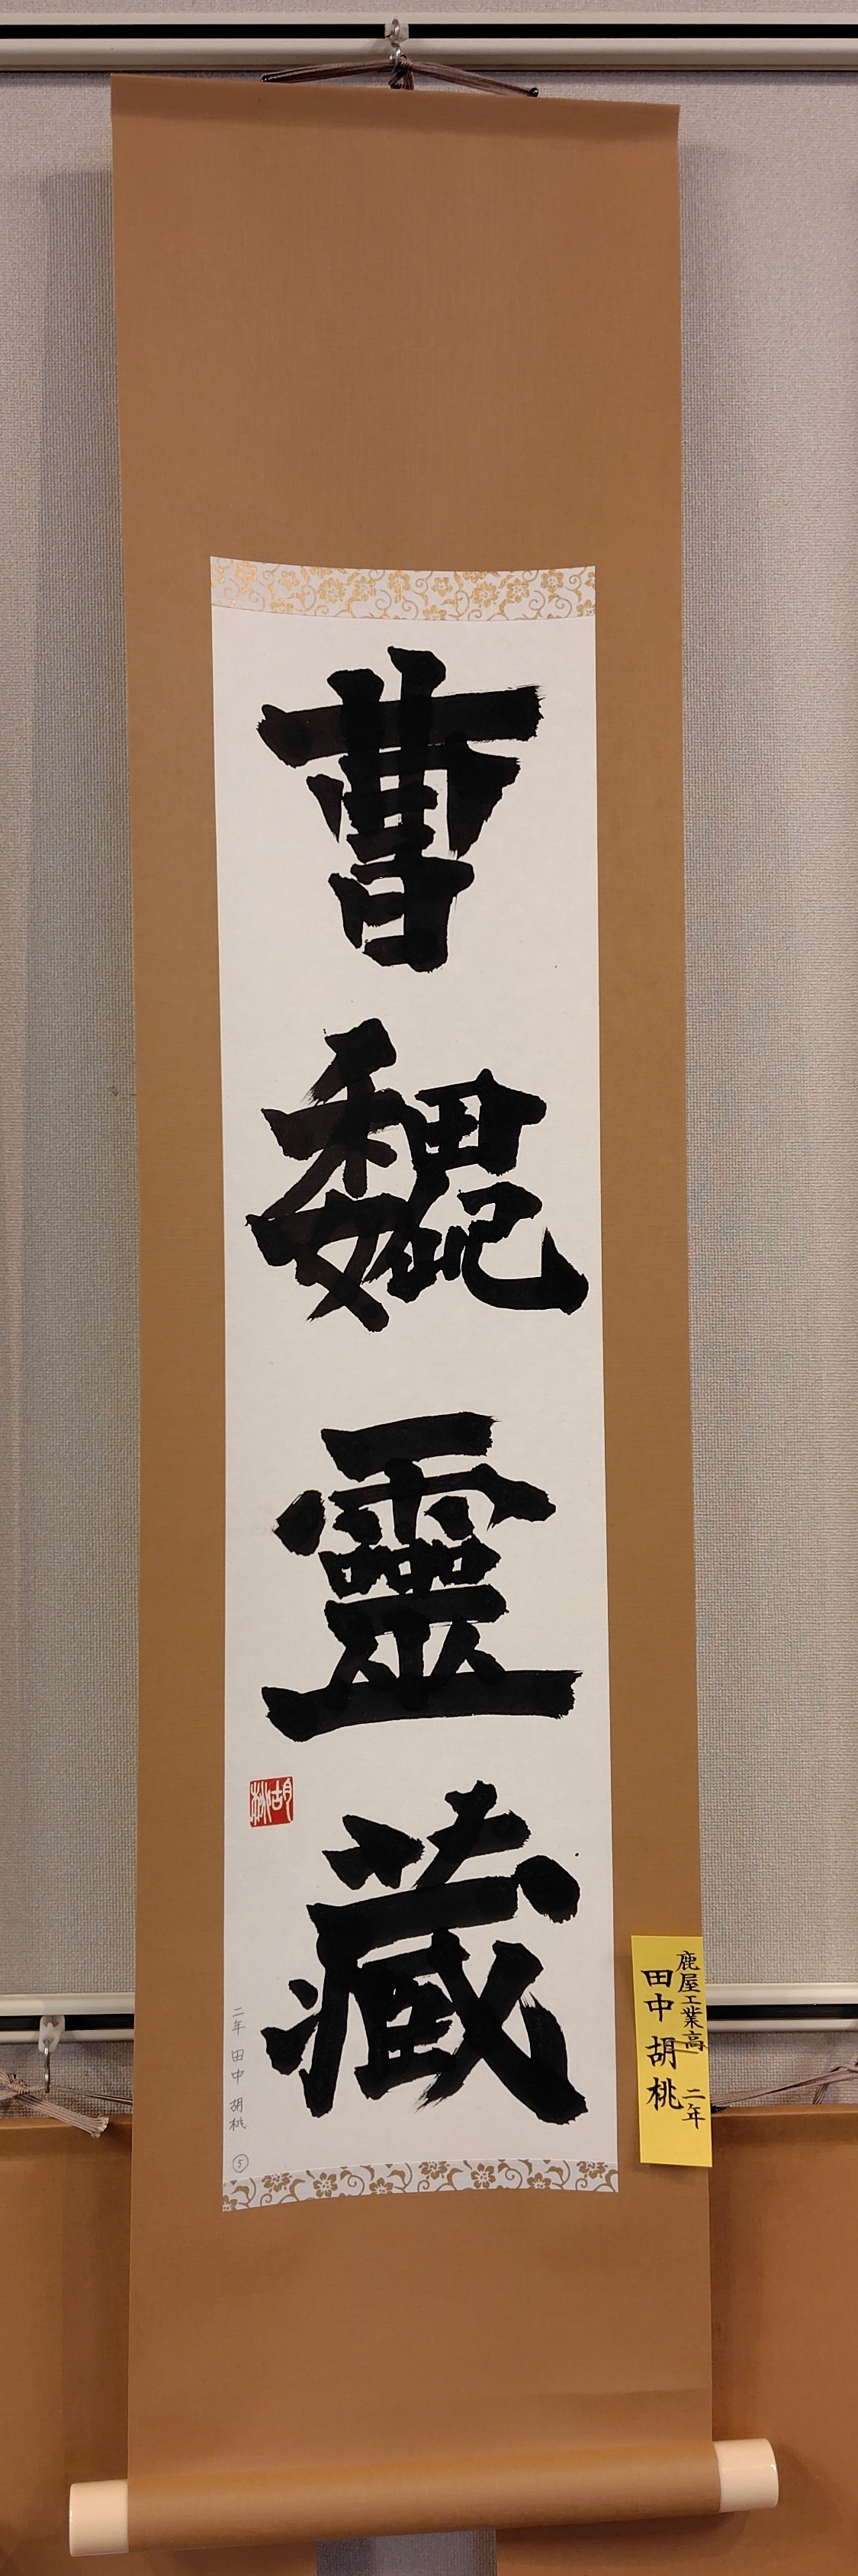 曹魏靈藏
胡桃
二年 田中 胡桃
5
鹿屋工業高 二年
田中 胡桃